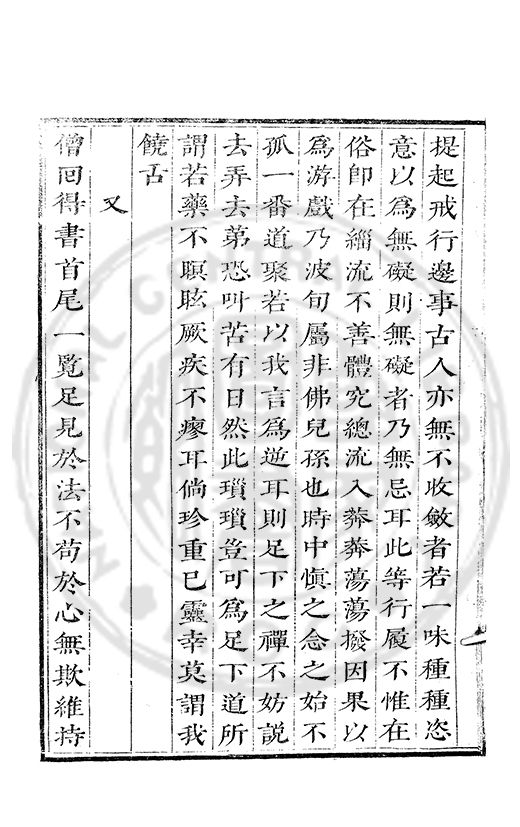 提起戒行邊事古人亦無不收斂者若一味種種恣
意以為無礙則無礙者乃無忌耳此等行履不惟在
俗即在緇流不善體究總流入莽莽蕩蕩撥因果以
為游戲乃波旬屬非佛兒孫也時中慎之念之始不
孤一番道聚若以我言為逆耳則足下之禪不妨說
去弄去第恐叫苦有日然此瑣瑣豈可為足下道所
謂若藥不瞑眩厥疾不瘳耳倘珍重已靈幸莫謂我
饒舌
又
僧回得書首尾一覽足見於法不苟於心無欺維持